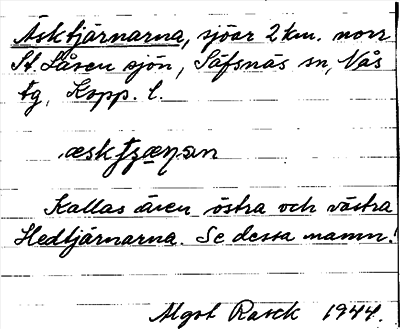 Äsktjärnarna, sjöar 2 km. norr
St Låsen sjön, Säfsnäs sn, Nås
tg, Kopp. l.
Kallas även östra och västra
Hedtjärnarna. Se dessa namn!
Algot Rask 1944.